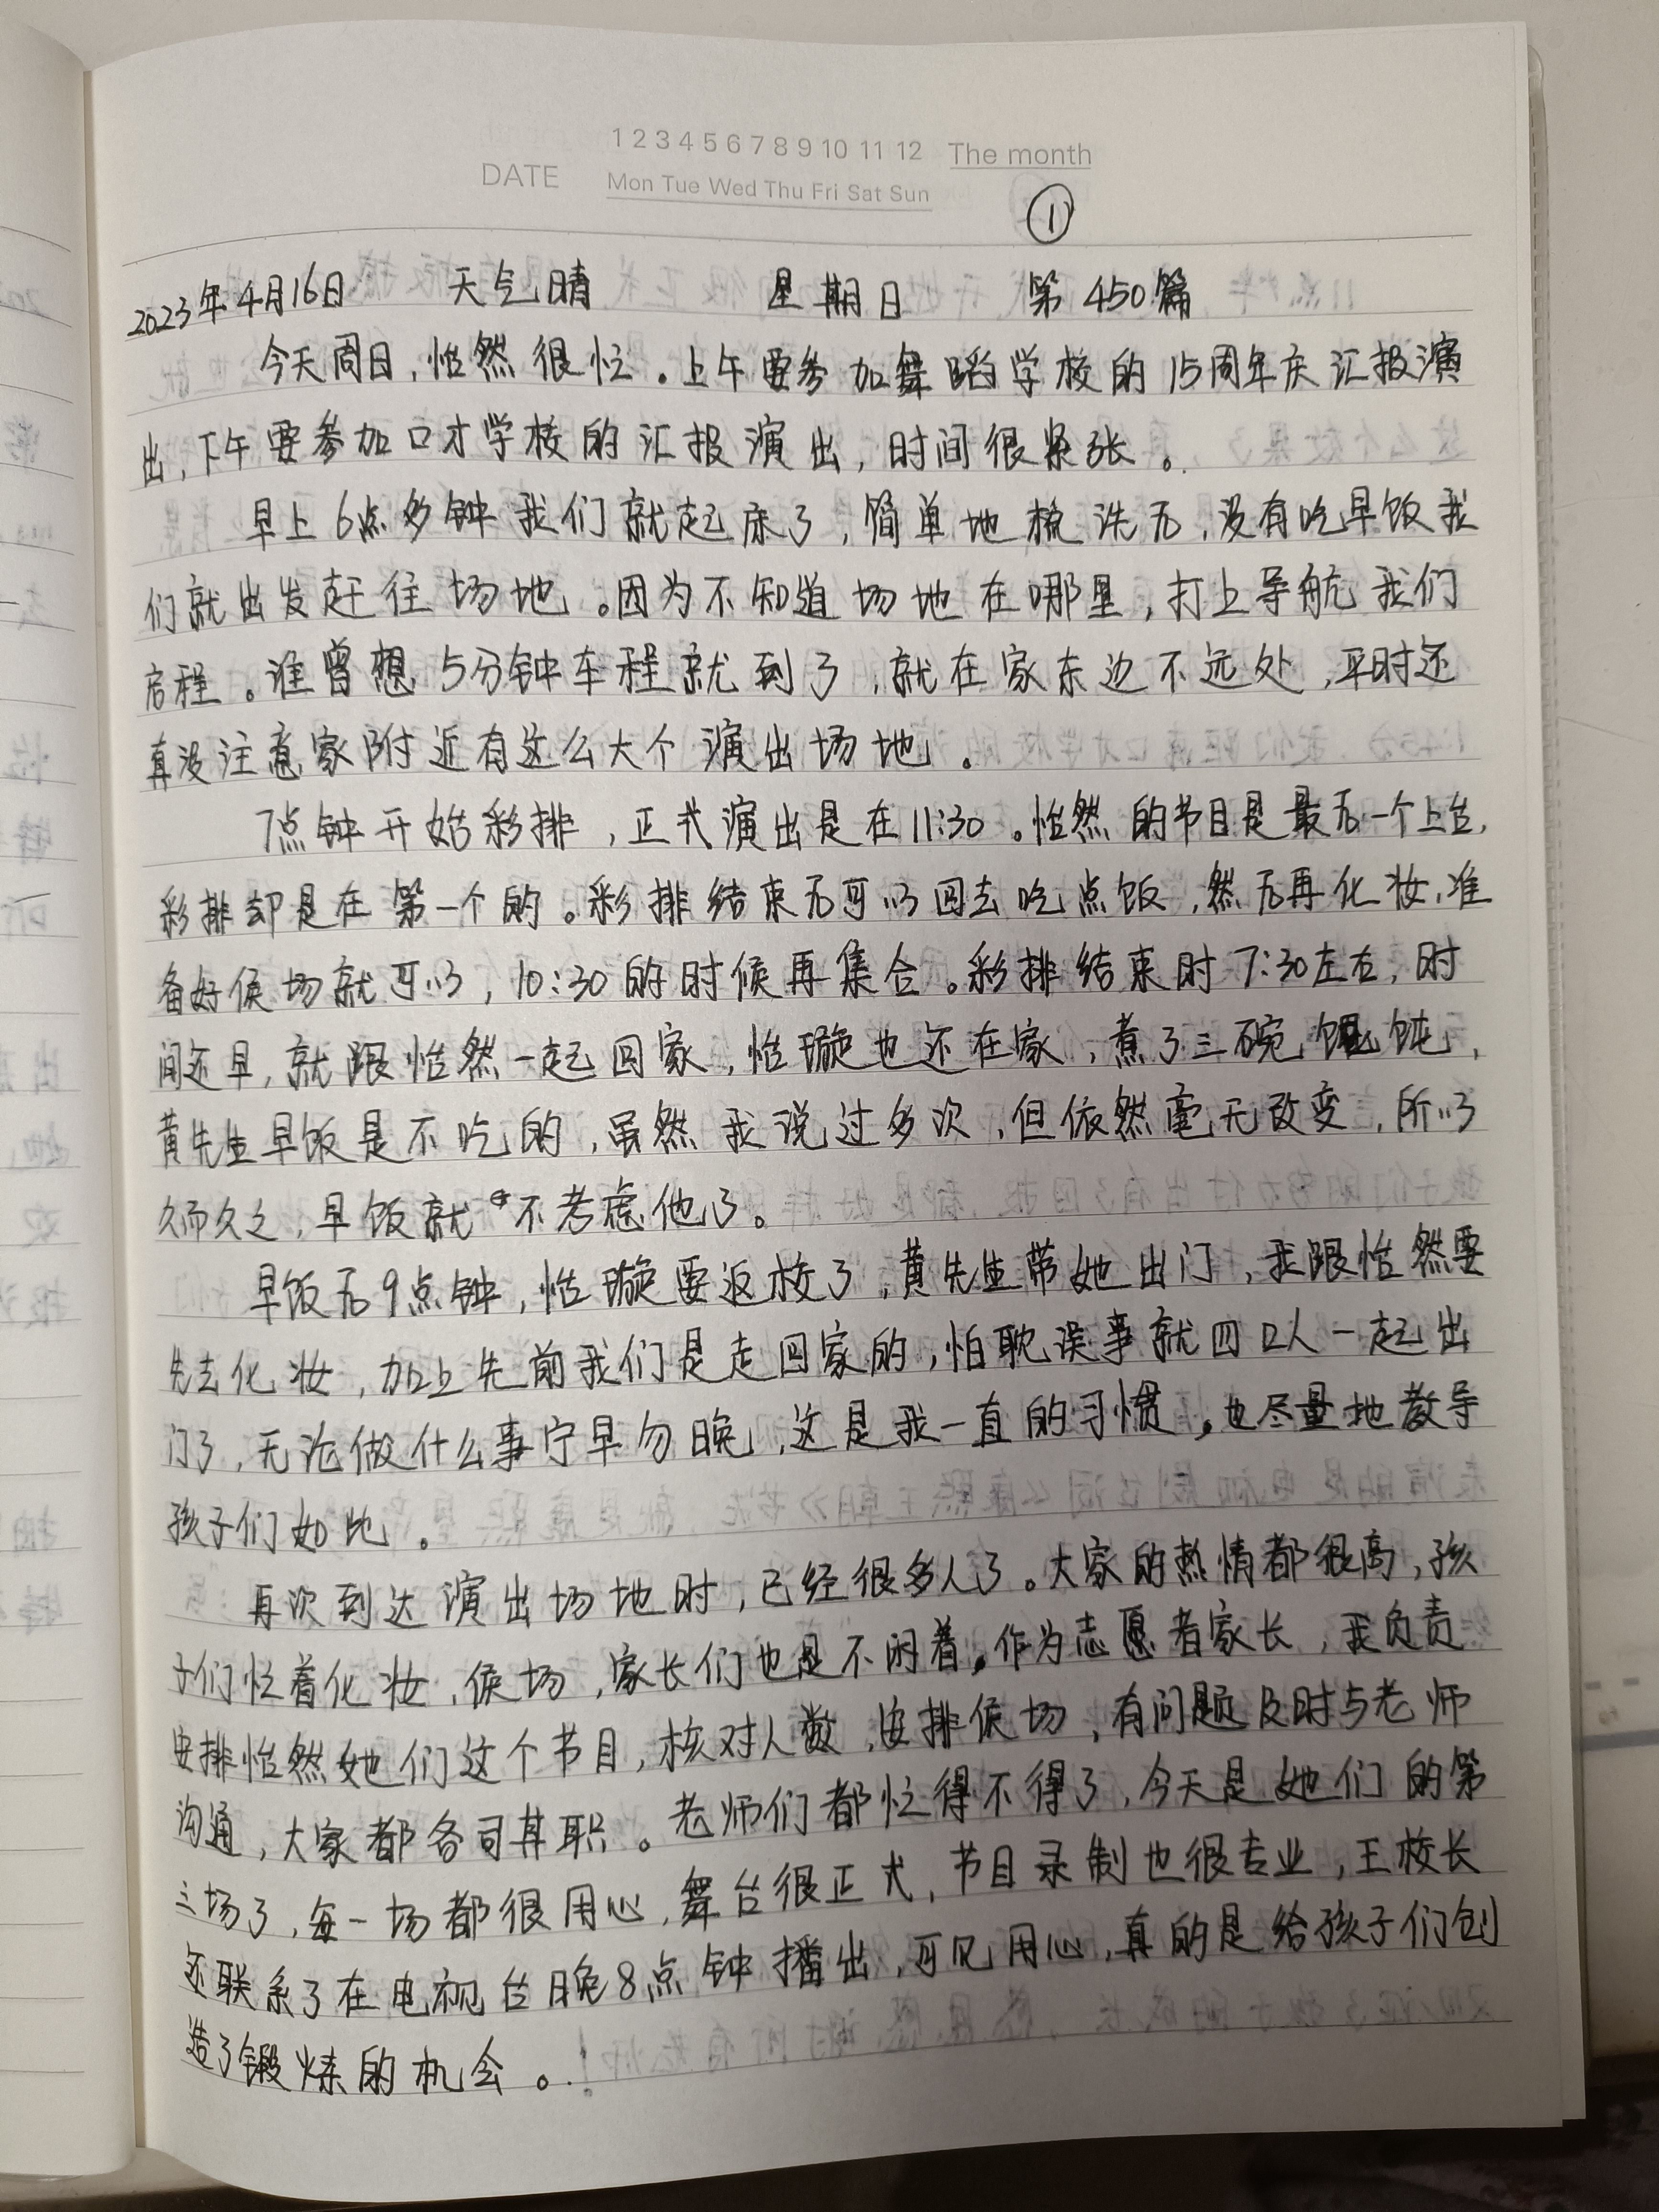 1 2 3 4 5 6 7 8 9 10 11 12 The month
DATE
Mon Tue Wed Thu Fri Sat Sun
①
2023年4月16日 天气晴 星期日 第450篇
今天周日,怡然很忙。上午要参加舞蹈学校的15周年庆汇报演
出,下午要参加口才学校的汇报演出,时间很紧张。
早上6点多钟我们就起床了,简单地梳洗后,没有吃早饭我
们就出发赶往场地。因为不知道场地在哪里,打上导航我们
启程。谁曾想5分钟车程就到了,就在家东边不远处,平时还
真没注意家附近有这么大个演出场地。
7点钟开始彩排,正式演出是在11:30。怡然的节目是最后一个上台,
彩排却是在第一个的。彩排结束后可以回去吃点饭,然后再化妆,准
备好候场就可以,10:30的时候再集合。彩排结束时7:30左右,时
间还早,就跟怡然一起回家,怡璇也还在家,煮了三碗馄饨,
黄先生早饭是不吃的,虽然我说过多次,但依然毫无改变,所以
久而久之,早饭就不考虑他了。
早饭后9点钟,怡璇要返校了,黄先生带她出门,我跟怡然要
先去化妆,加上先前我们是走回家的,怕耽误事就四口人一起出
门了,无论做什么事宁早勿晚,这是我一直的习惯,也尽量地教导
孩子们如此。
再次到达演出场地时,已经很多人了。大家的热情都很高,孩
子们忙着化妆,候场,家长们也是不闲着。作为志愿者家长,我负责
安排怡然她们这个节目,核对人数,安排候场,有问题及时与老师
沟通,大家都各司其职。老师们都忙得不得了,今天是她们的第
三场了,每一场都很用心,舞台很正式,节目录制也很专业,王校长
还联系了在电视台晚8点钟播出,可见用心,真的是给孩子们创
造了锻炼的机会。